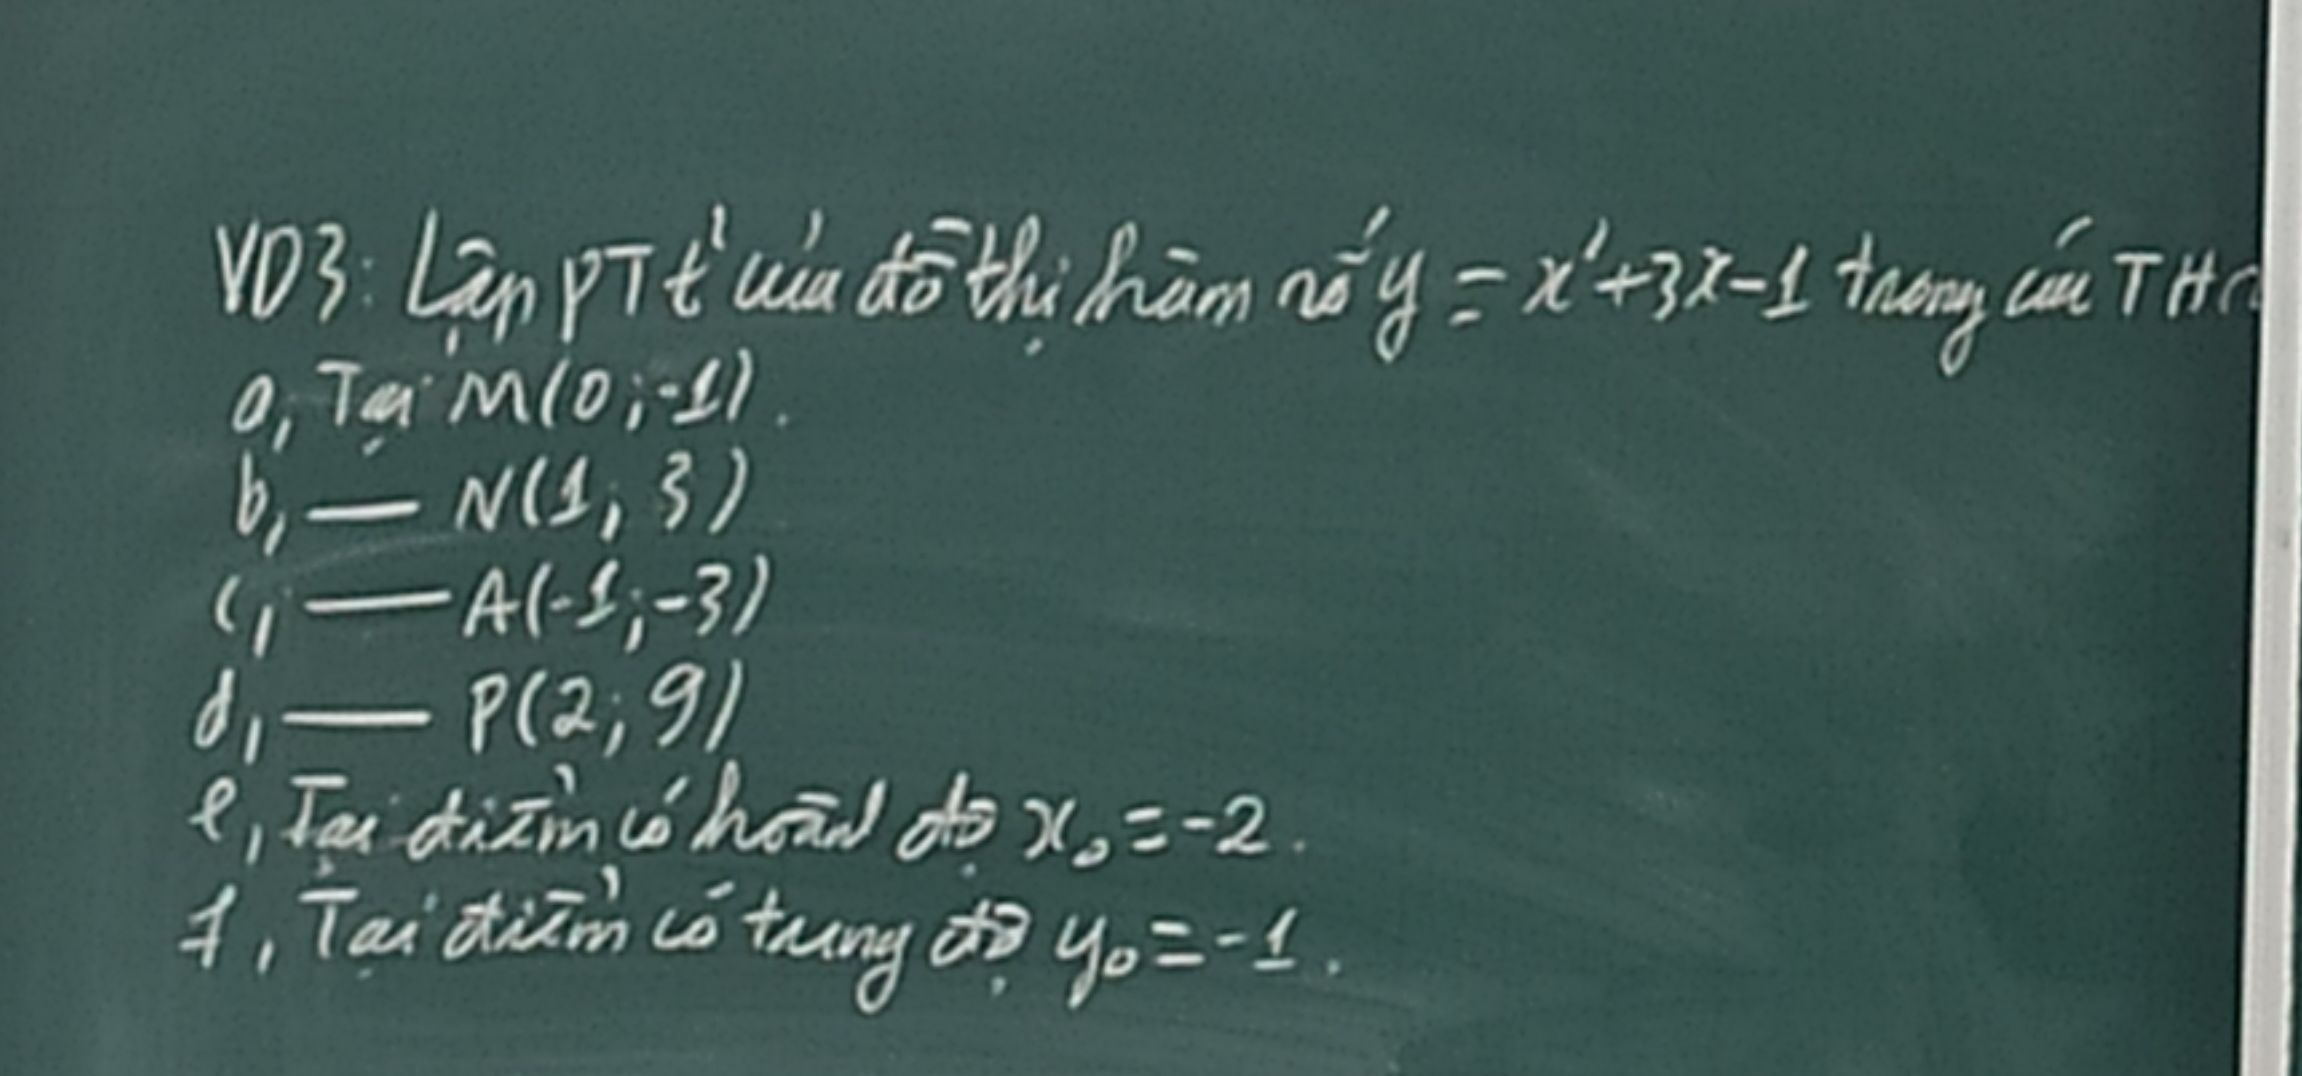 VD3: Lập PT t² của đồ thị hàm số y = x²+3x-1 trong các TH
a, Tại M(0;-1).
b, — N(1; 3)
c, — A(-1;-3)
d, — P(2; 9)
e, Tại điểm có hoành độ x₀=-2.
f, Tại điểm có tung độ y₀=-1.